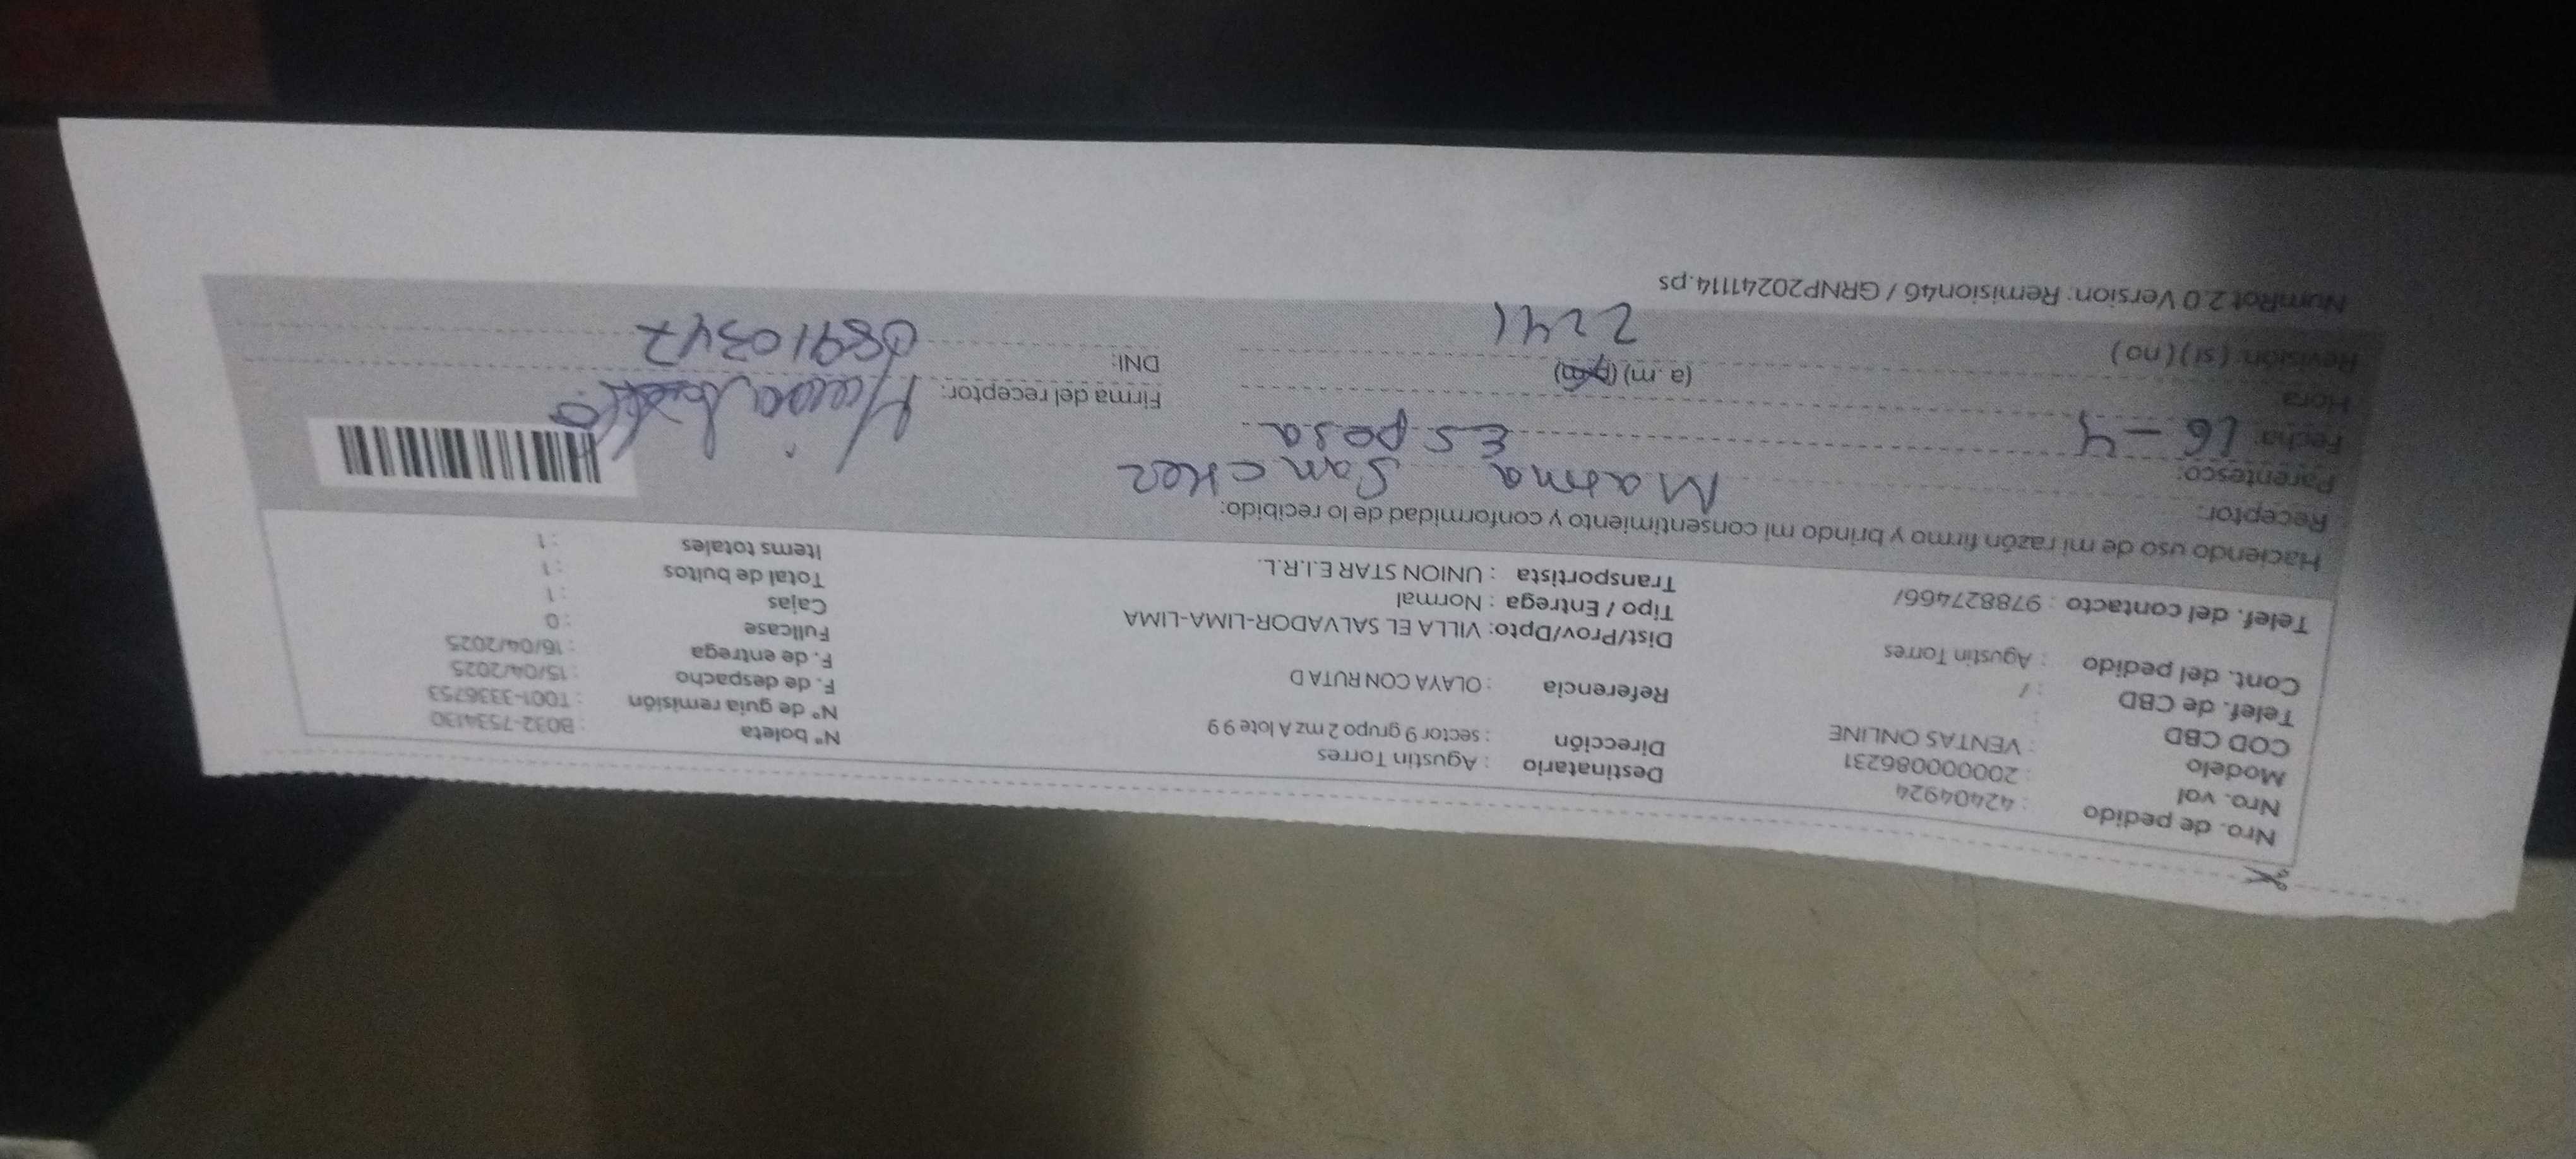 Nro. de pedido : 42404924
Nro. vol : 20000086231
Modelo : VENTAS ONLINE
COD CBD :
Telef. de CBD : /
Cont. del pedido : Agustin Torres
Telef. del contacto : 978827466/
Destinatario : Agustin Torres
Dirección : sector 9 grupo 2 mz A lote 9 9
Referencia : OLAYA CON RUTA D
Dist/Prov/Dpto: VILLA EL SALVADOR-LIMA-LIMA
Tipo / Entrega : Normal
Transportista : UNION STAR E.I.R.L.
N° boleta : B032-7534130
N° de guia remisión : T001-3336753
F. de despacho : 15/04/2025
F. de entrega : 16/04/2025
Fullcase : 0
Cajas : 1
Total de bultos : 1
Items totales : 1
Haciendo uso de mi razón firmo y brindo mi consentimiento y conformidad de lo recibido:
Receptor: Sanchez
Parentesco: Esposa
Fecha: 16-4
Hora (a.m) (p.m)
Revisión: (si) (no) 2241
Firma del receptor:
DNI: 08910347
NumRot 2.0 Version: Remision46 / GRNP20241114.ps